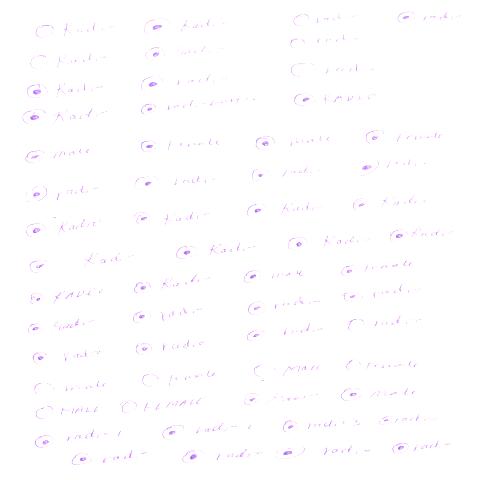 Radio Radio radio radio
Radio radio radio
Radio radio radio
Radio RADIO
male female male female
radio radio radio radio
Radio Radio Radio Radio
Radio Radio Radio Radio
RADIO Radio male female
radio radio radio radio
radio radio radio radio
male female Male Female
MALE FEMALE Male
radio radio radio radio
radio radio radio radio